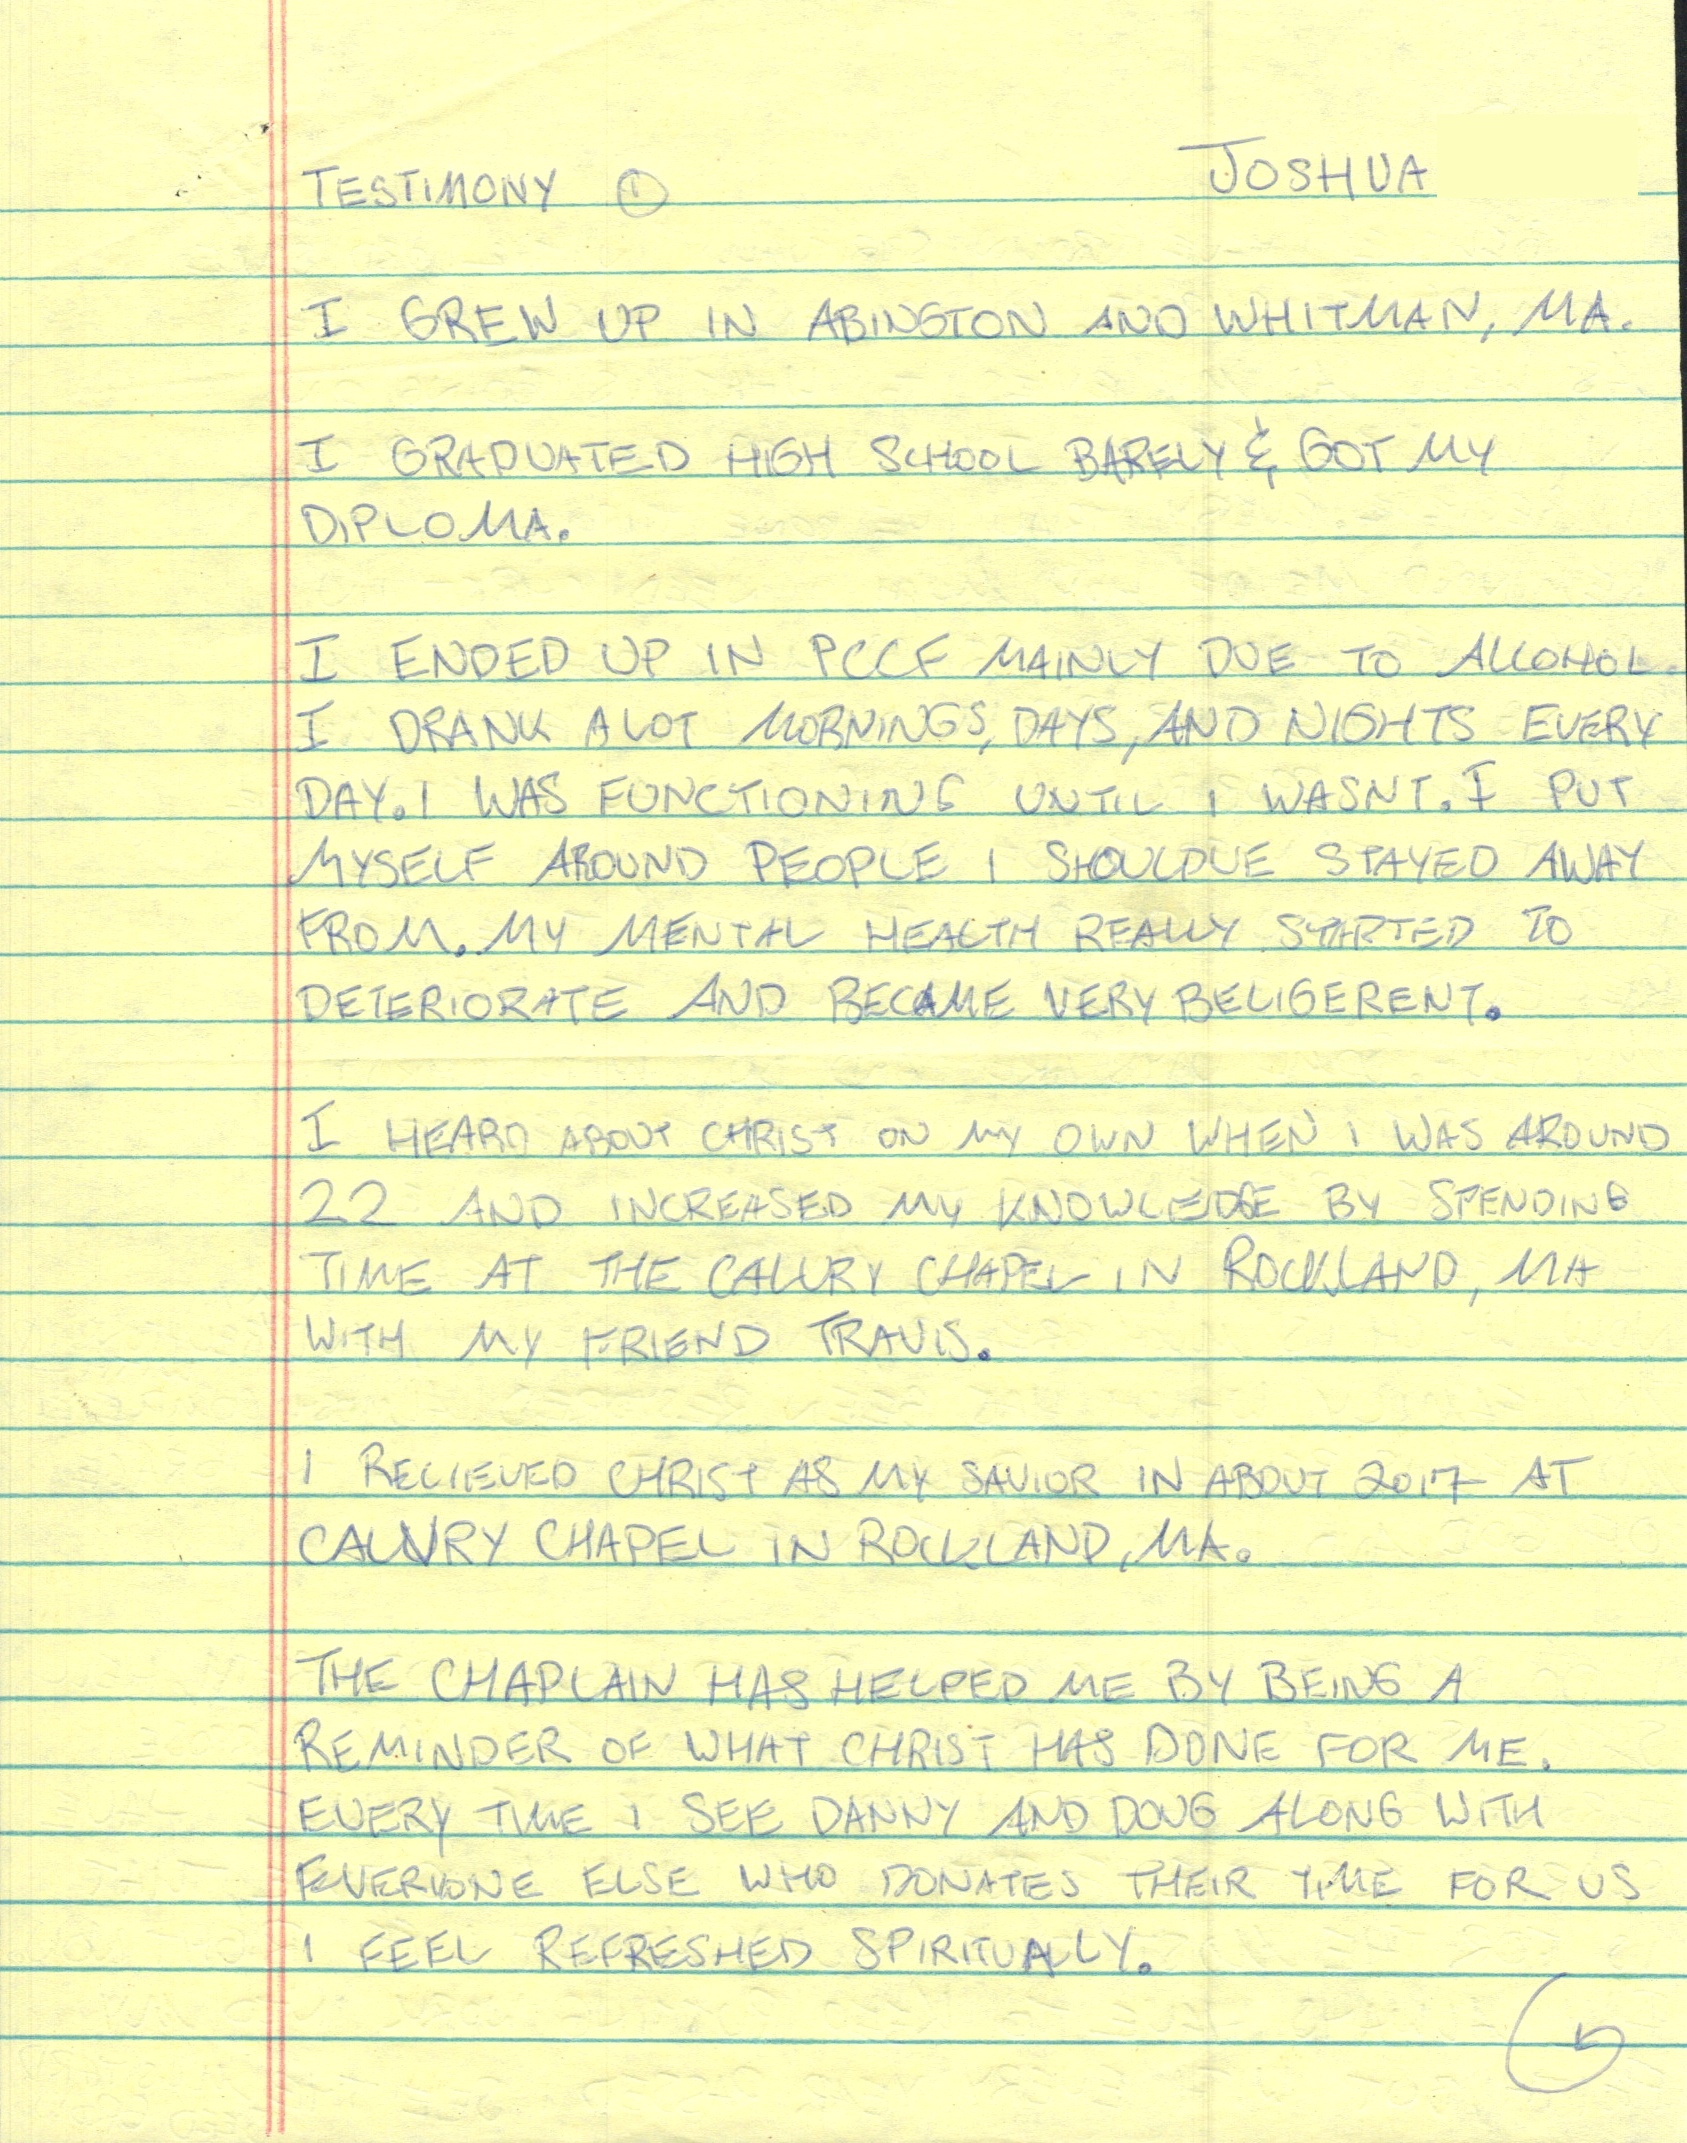 TESTIMONY ① JOSHUA
I GREW UP IN ABINGTON AND WHITMAN, MA.
I GRADUATED HIGH SCHOOL BARELY & GOT MY
DIPLOMA.
I ENDED UP IN PCCF MAINLY DUE TO ALCOHOL.
I DRANK A LOT MORNINGS, DAYS, AND NIGHTS EVERY
DAY. I WAS FUNCTIONING UNTIL I WASNT. I PUT
MYSELF AROUND PEOPLE I SHOULDVE STAYED AWAY
FROM. MY MENTAL HEALTH REALLY STARTED TO
DETERIORATE AND BECAME VERY BELIGERENT.
I HEARD ABOUT CHRIST ON MY OWN WHEN I WAS AROUND
22 AND INCREASED MY KNOWLEDGE BY SPENDING
TIME AT THE CALVRY CHAPEL IN ROCKLAND, MA
WITH MY FRIEND TRAVIS.
I RECIEVED CHRIST AS MY SAVIOR IN ABOUT 2017 AT
CALVRY CHAPEL IN ROCKLAND, MA.
THE CHAPLAIN HAS HELPED ME BY BEING A
REMINDER OF WHAT CHRIST HAS DONE FOR ME.
EVERY TIME I SEE DANNY AND DOUG ALONG WITH
EVERYONE ELSE WHO DONATES THEIR TIME FOR US
I FEEL REFRESHED SPIRITUALLY.